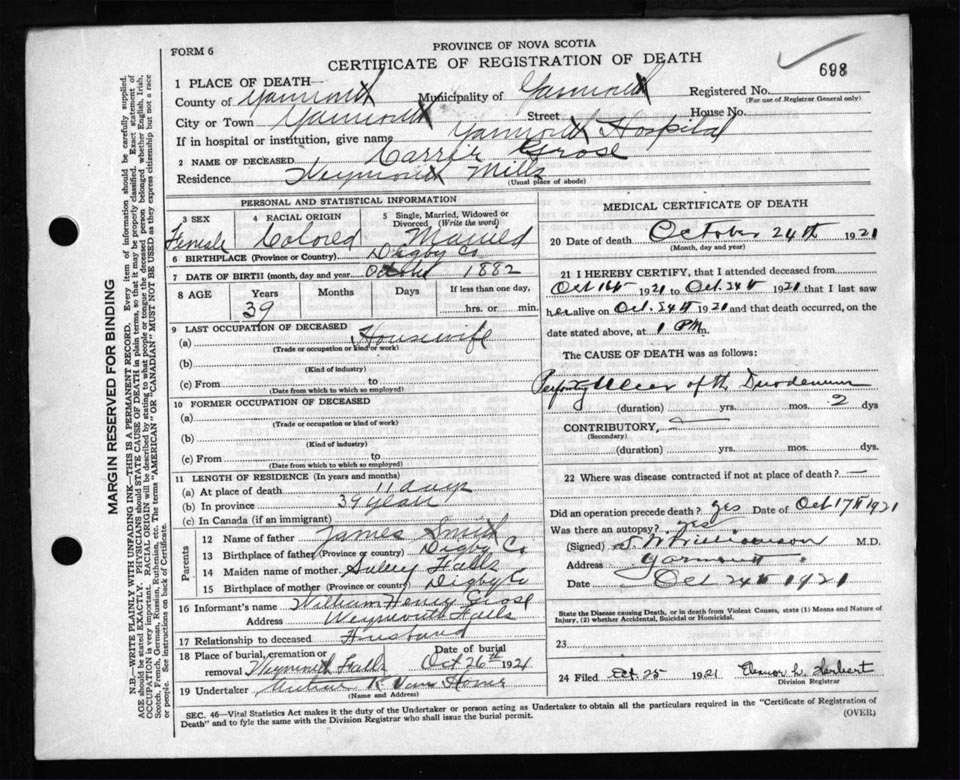 PROVINCE OF NOVA SCOTIA
FORM 6
CERTIFICATE OF REGISTRATION OF DEATH
698
1 PLACE OF DEATH—
County of Yarmouth Municipality of Yarmouth Registered No.
(For use of Registrar General only)
City or Town Yarmouth Street House No.
If in hospital or institution, give name Yarmouth Hospital
2 NAME OF DECEASED Carrie Grose
Residence Weymouth Mills
(Usual place of abode)
PERSONAL AND STATISTICAL INFORMATION
3 SEX Female
4 RACIAL ORIGIN Colored
5 Single, Married, Widowed or Divorced (Write the word) Married
6 BIRTHPLACE (Province or Country) Digby Co
7 DATE OF BIRTH (month, day and year) 1882
8 AGE Years 39 Months Days If less than one day, hrs. or min.
9 LAST OCCUPATION OF DECEASED
(a) Housewife
(Trade or occupation or kind or work)
(b)
(Kind of industry)
(c) From to
(Date from which to which so employed)
10 FORMER OCCUPATION OF DECEASED
(a)
(Trade or occupation or kind or work)
(b)
(Kind of industry)
(c) From to
(Date from which to which so employed)
11 LENGTH OF RESIDENCE (In years and months)
(a) At place of death 11 days
(b) In province 39 years
(c) In Canada (if an immigrant)
Parents
12 Name of father James Smith
13 Birthplace of father (Province or country) Digby Co
14 Maiden name of mother Falls
15 Birthplace of mother (Province or Country) Digby Co
16 Informant's name William Henry Grose
Address Weymouth Falls
17 Relationship to deceased Husband
18 Place of burial, cremation or removal Weymouth Falls Date of burial Oct 26th 1921
19 Undertaker Arthur K Van Horne
(Name and Address)
MEDICAL CERTIFICATE OF DEATH
20 Date of death October 24th 1921
(Month, day and year)
21 I HEREBY CERTIFY, that I attended deceased from
Oct 16th 1921 to Oct. 24th 1921 that I last saw
her alive on Oct. 24th 1921 and that death occurred, on the
date stated above, at 1 PM m.
The CAUSE OF DEATH was as follows:
Perforating Ulcer of the Duodenum
(duration) yrs. mos. 2 dys
CONTRIBUTORY,
(Secondary)
(duration) yrs. mos. dys.
22 Where was disease contracted if not at place of death? —
Did an operation precede death? Yes Date of Oct 17th 1921
Was there an autopsy? Yes
(Signed) Williamson M.D.
Address Yarmouth
Date Oct 24th 1921
State the Disease causing Death, or in death from Violent Causes, state (1) Means and Nature of
Injury, (2) whether Accidental, Suicidal or Homicidal.
23
24 Filed Oct. 25 1921 Herbert
Division Registrar
SEC. 46—Vital Statistics Act makes it the duty of the Undertaker or person acting as Undertaker to obtain all the particulars required in the "Certificate of Registration of
Death" and to fyle the same with the Division Registrar who shall issue the burial permit.
(OVER)
MARGIN RESERVED FOR BINDING
N.B.—WRITE PLAINLY WITH UNFADING INK—THIS IS A PERMANENT RECORD. Every item of information should be carefully supplied.
AGE should be stated EXACTLY. PHYSICIANS should STATE CAUSE OF DEATH in plain terms, so that it may be properly classified. Exact statement of
OCCUPATION is very important. RACIAL ORIGIN will be described by stating to what people or tongue the deceased person belonged whether English, Irish,
Scotch, French, German, Russian, Ruthenian, etc. The terms "AMERICAN" OR "CANADIAN" MUST NOT BE USED as they express citizenship but not a race
or people. See instructions on back of Certificate.